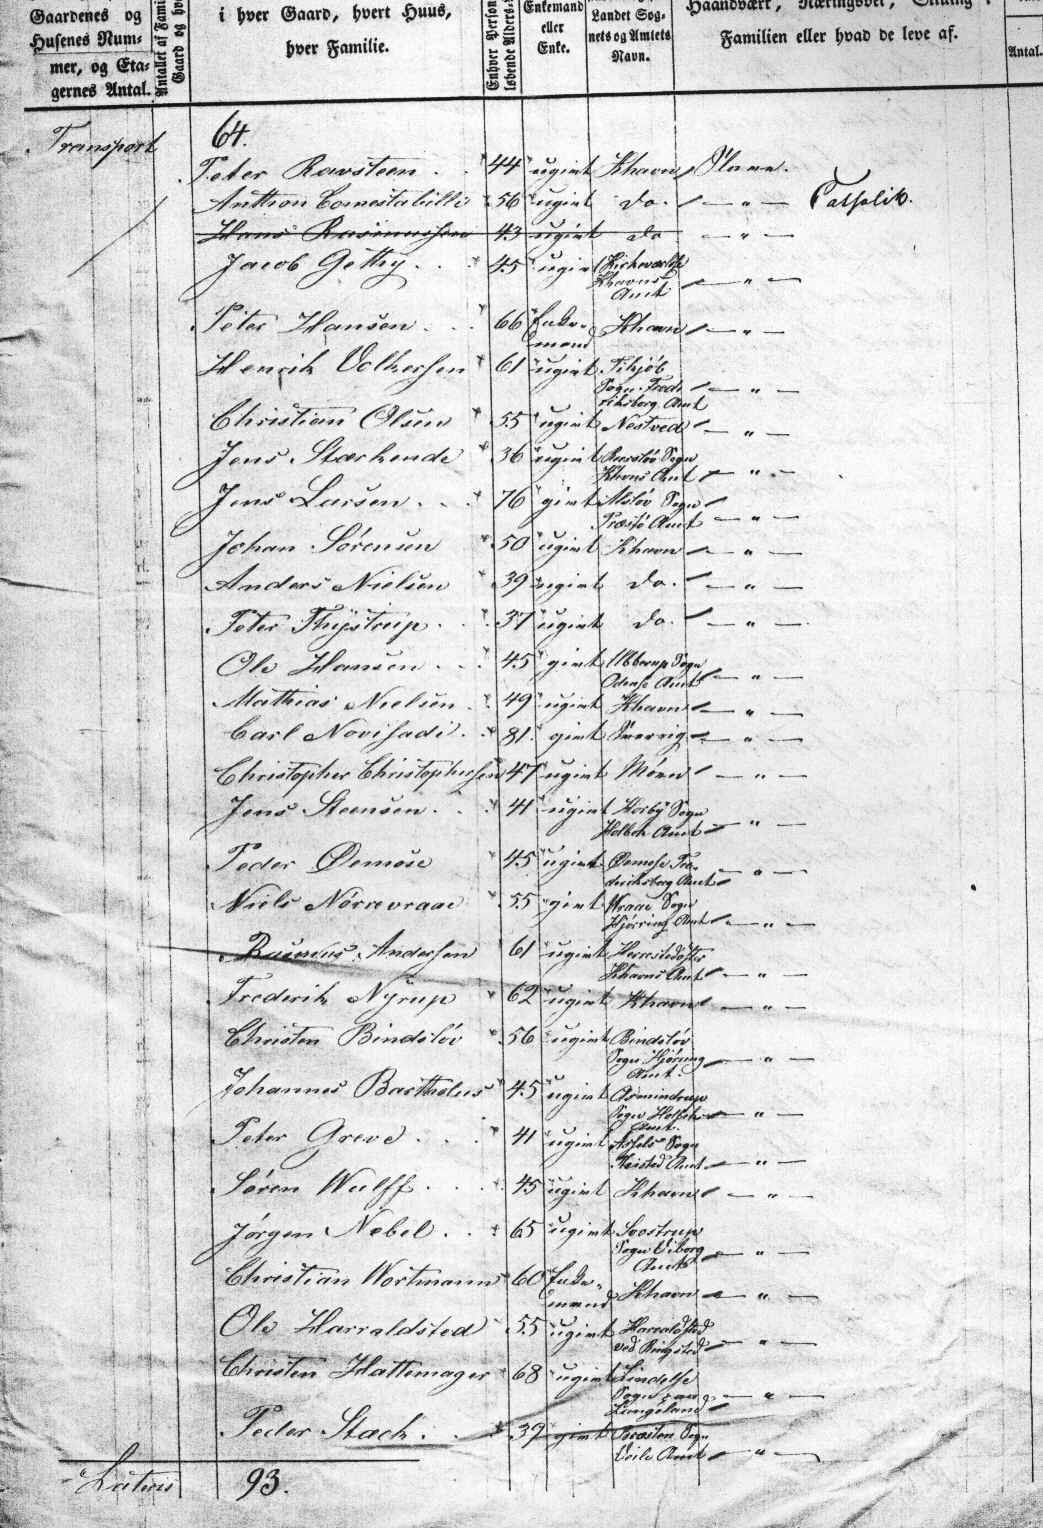 Gaardenes og
Husenes Num-
mer, og Eta-
gernes Antal.
Antallet af Fami
Gaard og hv
i hver Gaard, hvert Huus,
hver Familie.
Enhver Person
løbende Alders-
Enkemand
eller
Enke.
Landet Sog-
nets og Amtets
Navn.
Haandvært, Næringsvei,
Familien eller hvad de leve af.
Antal.
Transport 64.
Peter Ravsteen . . 44 ugivt Khavn Slave.
Anthon Comestabille 56 ugivt do. — " — Catholik.
Hans Rasmussen 43 ugivt do — " —
Jacob Gethy . . 45 ugivt
Khavns
Amt — " —
Peter Hansen . . 66 Enke-
mand Khavn — " —
Henrik Volkersen 61 ugivt Tikjøb
Sogn Frede
riksborg Amt — " —
Christian Olsen 55 ugivt Nestved — " —
Jens Stærkende 36 ugivt Sogn
Khvns Amt — " —
Jens Larsen . . 76 givt Alslöv Sogn
Præstö Amt — " —
Johan Sörensen 50 ugivt Khavn — " —
Anders Nielsen 39 ugivt do. — " —
Peter Thÿstrup . . 37 ugivt do. — " —
Ole Hansen . . 45 givt Ubberup Sogn
Odense Amt — " —
Mathias Nielsen . 49 ugivt Khavn — " —
Carl Novisadi . . 81. givt Sverrig — " —
Christopher Christophersen 47 ugivt Möen — " —
Jens Steensen . . 41 ugivt Hörbÿ Sogn
Holbek Amt — " —
Peder Ødemose 45 ugivt Fre-
driksborg Amt — " —
Niels Nörrevraae 55 givt Vraae Sogn
Hjörring Amt — " —
Rasmus Andersen 61 ugivt
Khavns Amt — " —
Frederik Nÿrup 62 ugivt Khavn — " —
Christen Bindslöv 56 ugivt Bindslöv
Sogn Hjöring
Amt. — " —
Johannes Bartholus 45 ugivt Asmindrup
Sogn Holbek
Amt. — " —
Peter Greve . . . 41 ugivt Sogn
Amt — " —
Sören Wulff . . . 45 ugivt Khavn — " —
Jörgen Nebel . . 65 ugivt Svostrup
Sogn Viborg
Amt — " —
Christian Wortmann 60 Enke-
mand Khavn — " —
Ole Harraldsted 55 ugivt Haraldsted
ved Ringsted — " —
Christen Hattemager 68 ugivt Lindelse
Sogn paa
Langeland — " —
Peder Stach . . 39 givt Sogn
Veile Amt — " —
Latus 93.